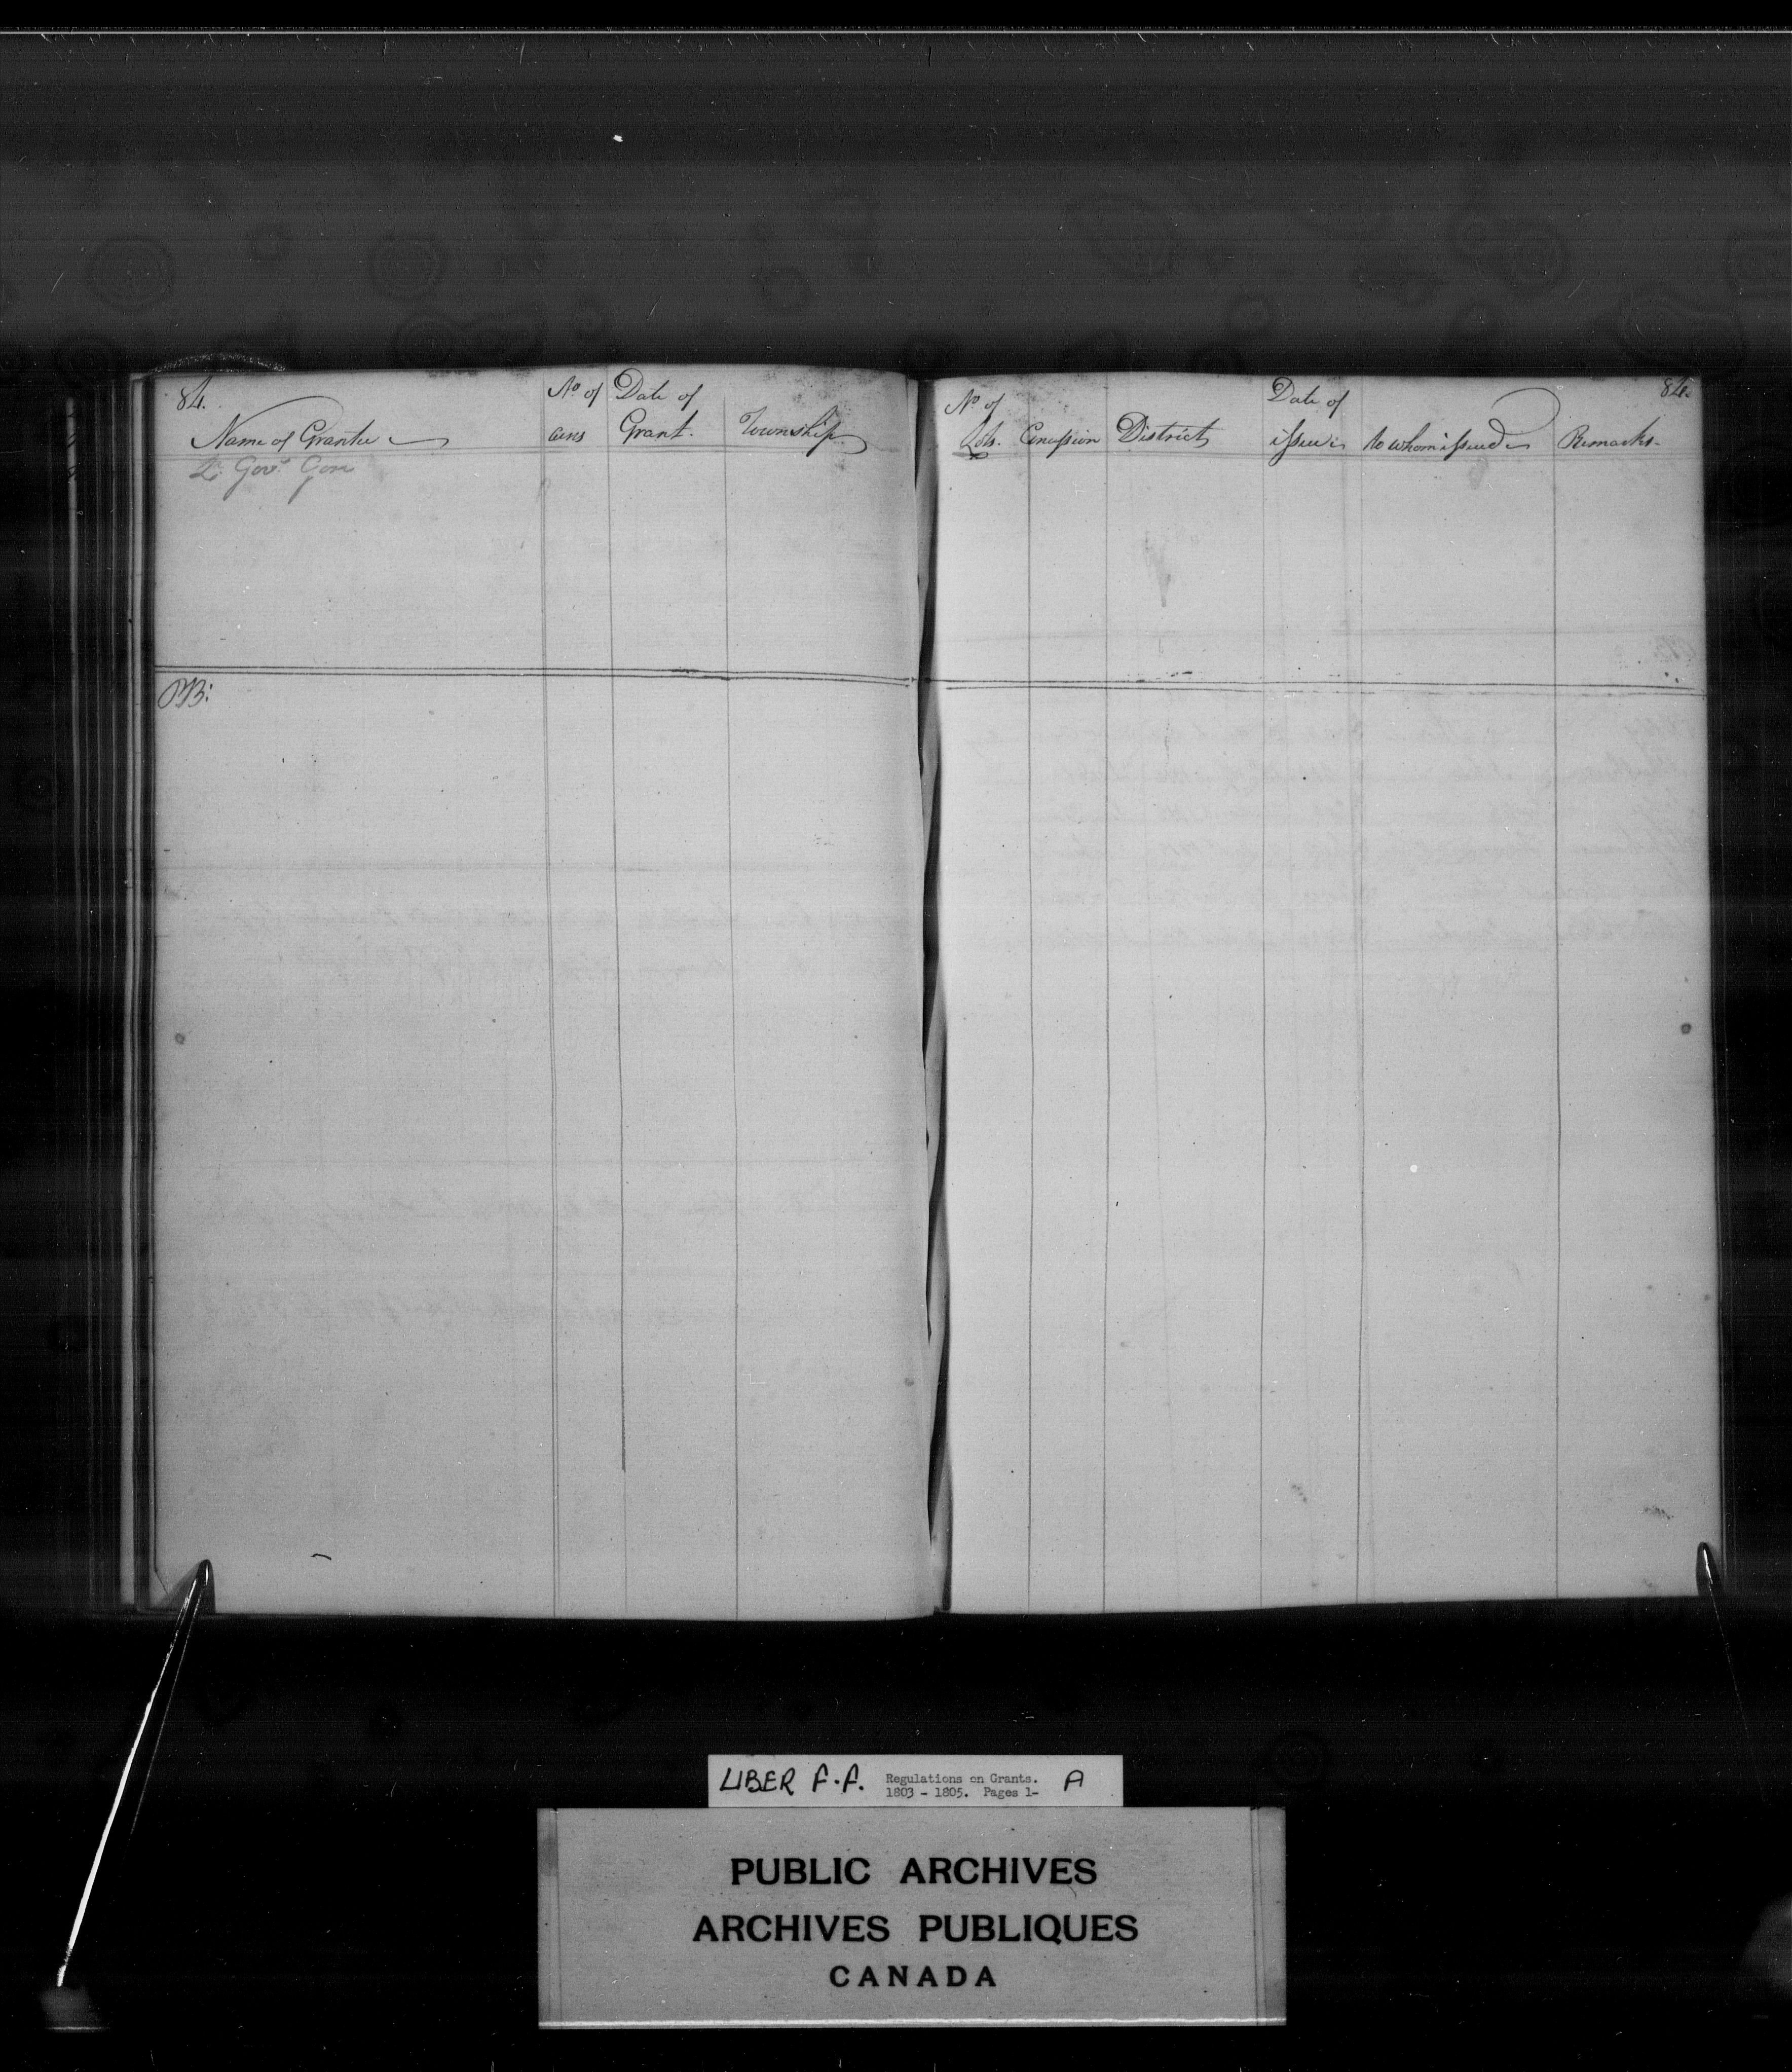 84.
Name of Grantee
No of
acres
Date of
Grant.
Township
Lt Govr Gore
NB:
84.
No of
Lots.
Concession
District
Date of
issue
to whom issued
Remarks
LIBER F.F. Regulations on Grants.
1803 - 1805. Pages 1- A
PUBLIC ARCHIVES
ARCHIVES PUBLIQUES
CANADA